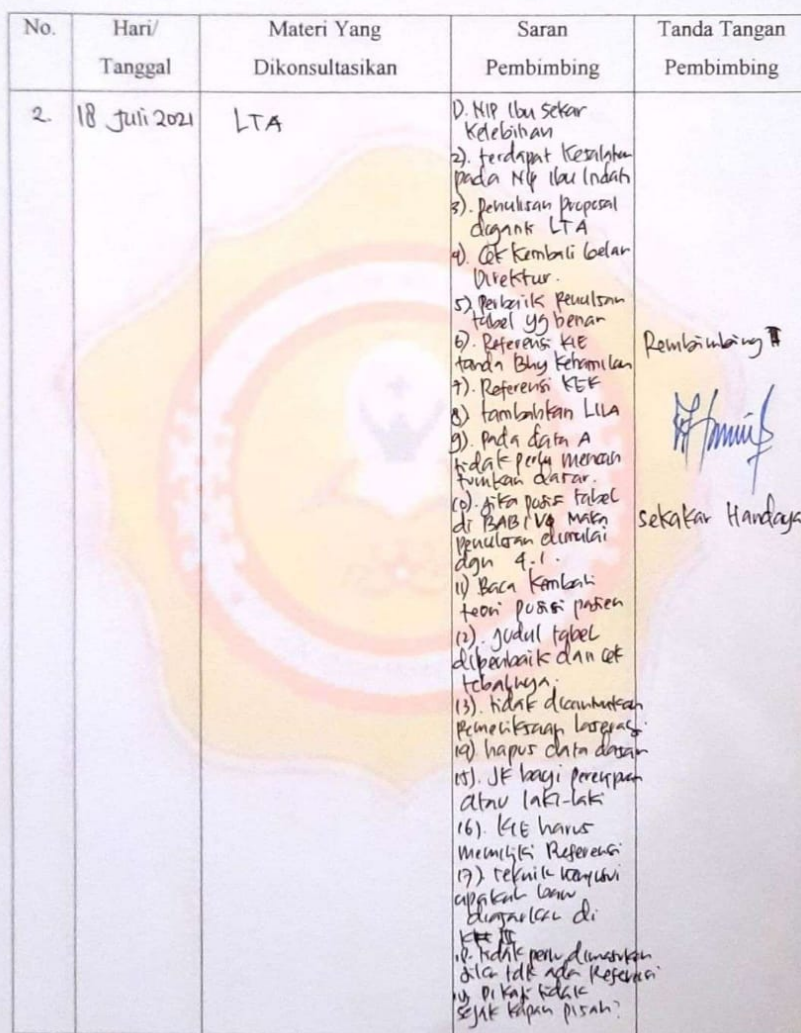 No.
Hari/
Tanggal
Materi Yang
Dikonsultasikan
Saran
Pembimbing
Tanda Tangan
Pembimbing
2.
18 Juli 2021
LTA
1). NIP Ibu Sekar
Kelebihan
2). terdapat Kesalahan
pada NIP Ibu Indah
3). Penulisan proposal
diganti LTA
4). Cek Kembali Gelar
Direktur.
5). Perbaik Penulisan
tabel yg benar
6). Referensi KIE
tanda Bhy Kehamilan
7). Referensi KEK
8) tambahkan LILA
9). Pada data A
tidak perlu mencan
tumkan dasar.
10). Jika posisi tabel
di BAB IV Maka
penulisan dimulai
dgn 4.1.
11) Baca Kembali
teori posisi pasien
12). Judul tabel
diperbaik dan cek
tebalnya.
13). tidak dicantumkan
Pemeriksaan laserasi.
14) hapus data dasar
15). JK bayi perempuan
atau laki-laki
16). KIE harus
memiliki Referensi
17) teknik menyusui
apakah baru
diajarkan di
18. tidak perlu dimasukkan
jika tdk ada Referensi
19) Di Kaji tidak
sejak kapan pisah?
Pembimbing II
Sekakar Handaya